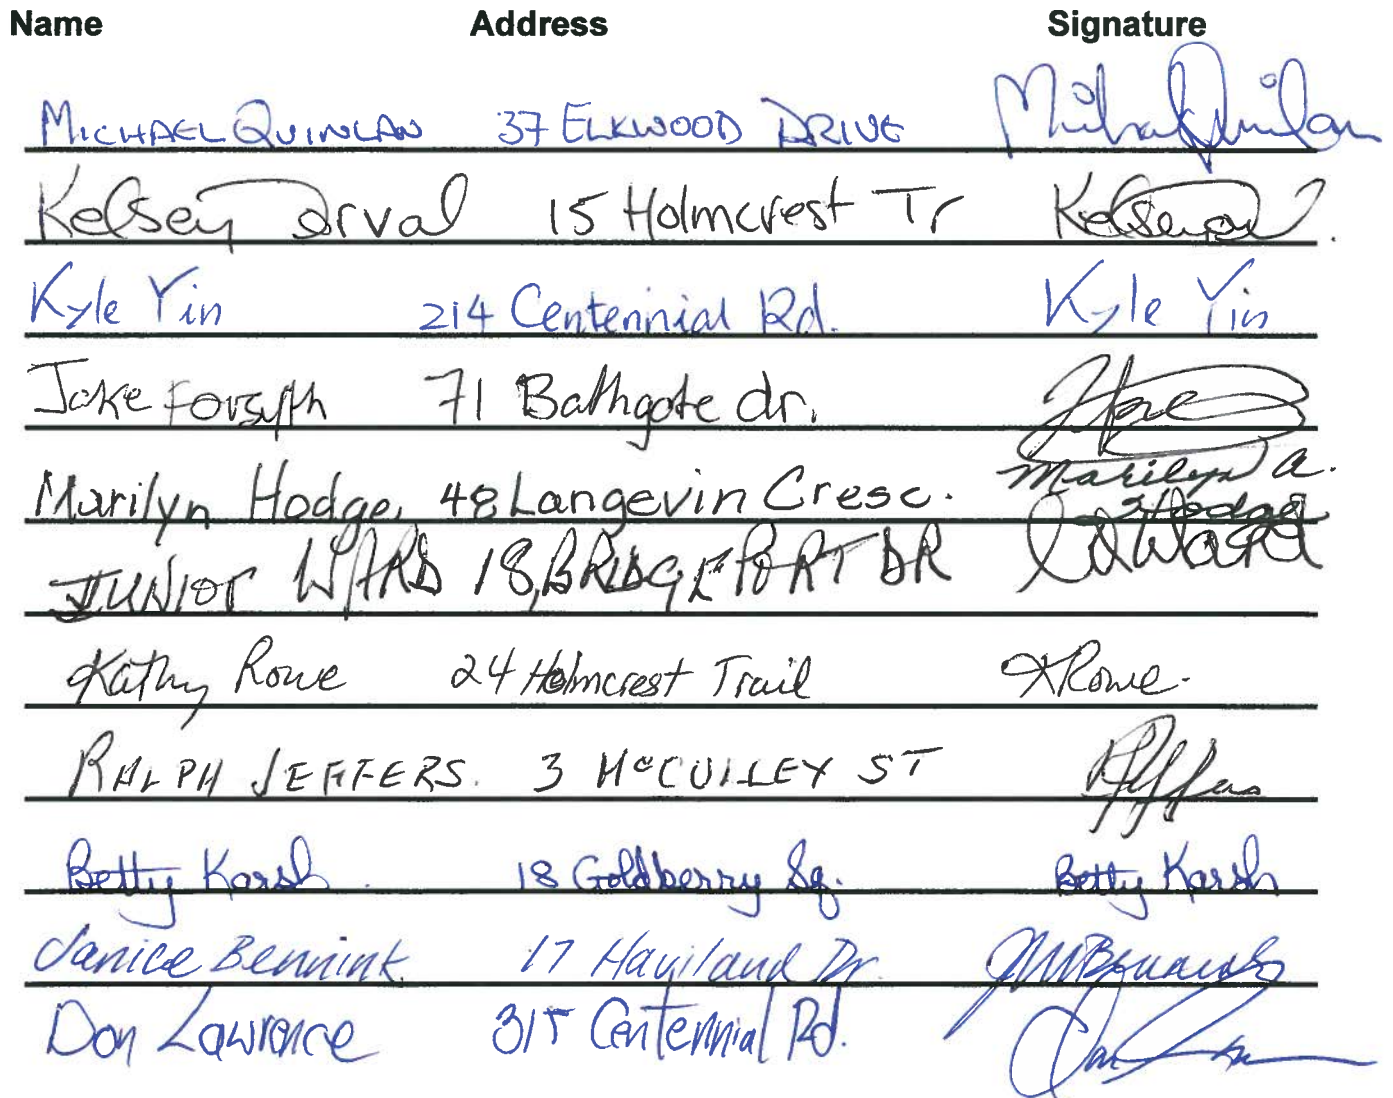 Name Address Signature
MICHAEL QUINLAN 37 ELKWOOD DRIVE
Kelsey Dorval 15 Holmcrest Tr
Kyle Yin 214 Centennial Rd. Kyle Yin
Jake Forsyth 71 Bathgate dr.
Marilyn Hodge, 48 Langevin Cresc. Marilyn A. Hodge
JUNIOR WARD 18, BRIDGEPORT DR
Kathy Rowe 24 Holmcrest Trail KRowe.
RALPH JEFFERS. 3 McCULLEY ST
Betty Karsh 18 Goldberry Sq. Betty Karsh
Janice Bennink 17 Haviland Dr.
Don Lawrence 315 Centennial Rd.